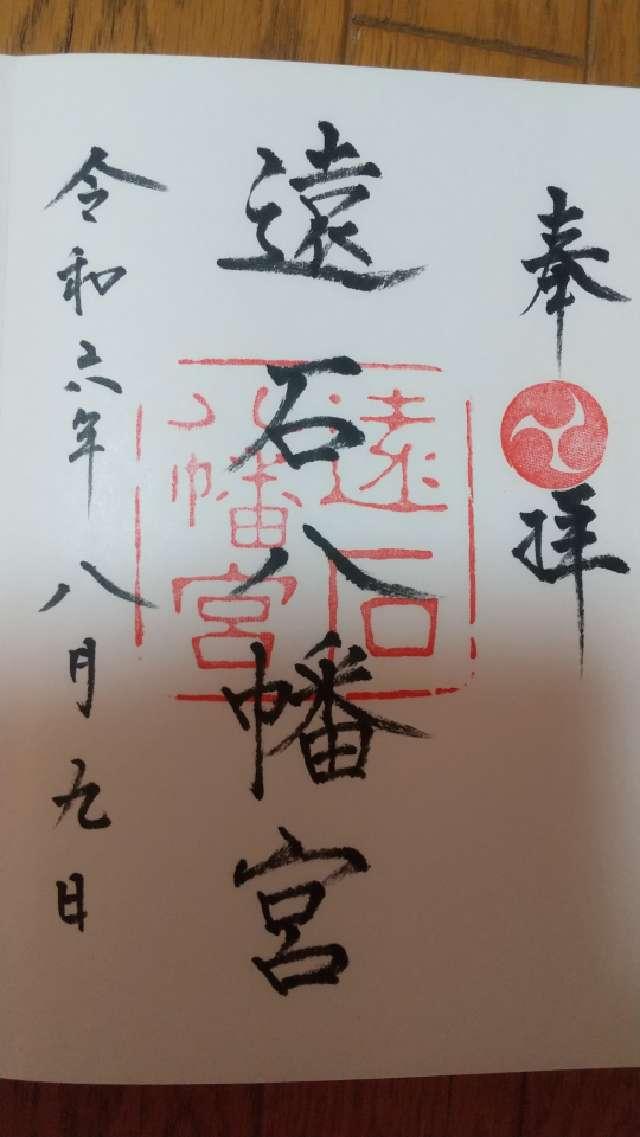 奉拝
遠石八幡宮
遠石
八幡宮
令和六年八月九日